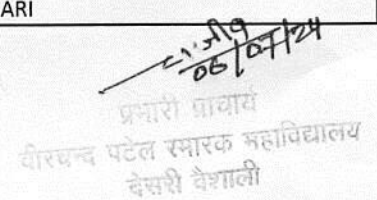 ARI
06/07/24
प्रभारी प्राचार्य
वीरचन्द पटेल स्मारक महाविद्यालय
देसरी वैशाली